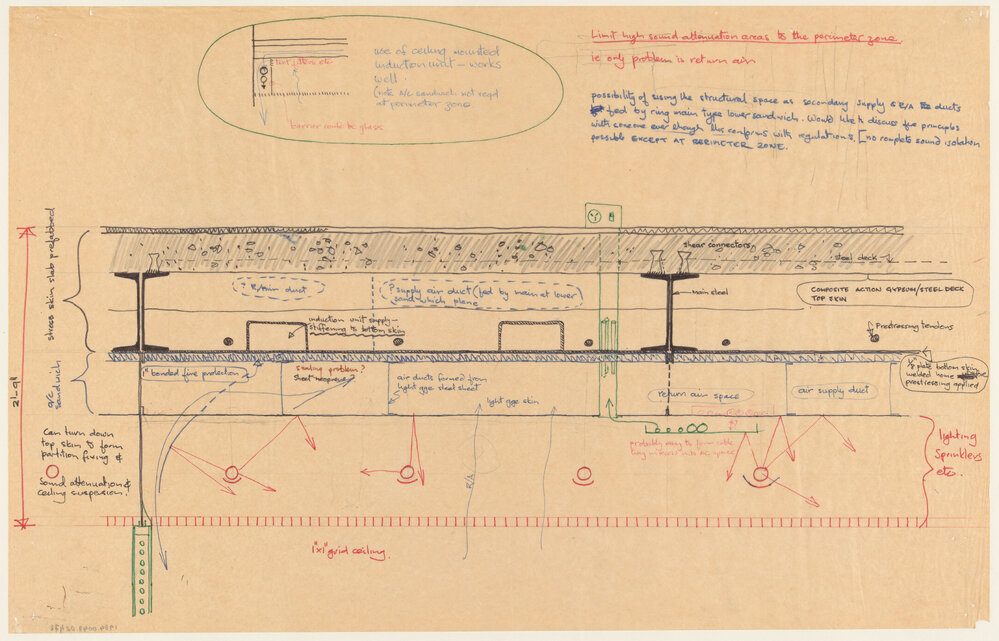 use of ceiling mounted
induction unit – works
well
(note A/C sandwich not reqd
at perimeter zone
barrier could be glass
Limit high sound attenuation areas to the perimeter zone.
ie only problem is return air
possibility of using the structural space as secondary supply & R/A ducts
fed by ring main type lower sandwich. Would like to discuss fire principles
with someone even though this conforms with regulations. [no complete sound isolation
possible EXCEPT AT PERIMETER ZONE.
stress skin slab prefabbed
a/c
sandwich
shear connectors
steel deck
COMPOSITE ACTION GYPSUM/STEEL DECK
TOP SKIN
? R/Air duct
? supply air duct (fed by main at lower
sandwhich plane
main steel
induction unit supply –
stiffening to bottom skin
Prestressing tendons
plate bottom skin
welded home
prestressing applied
1" bonded fire protection
sealing problem?
sheet neoprene
air ducts formed from
light gge steel sheet
light gge skin
return air space
air supply duct
Can turn down
top skin to form
partition fixing &
Sound attenuation &
ceiling suspension?
R/A
lighting
Sprinklers
etc.
1"x1" grid ceiling.